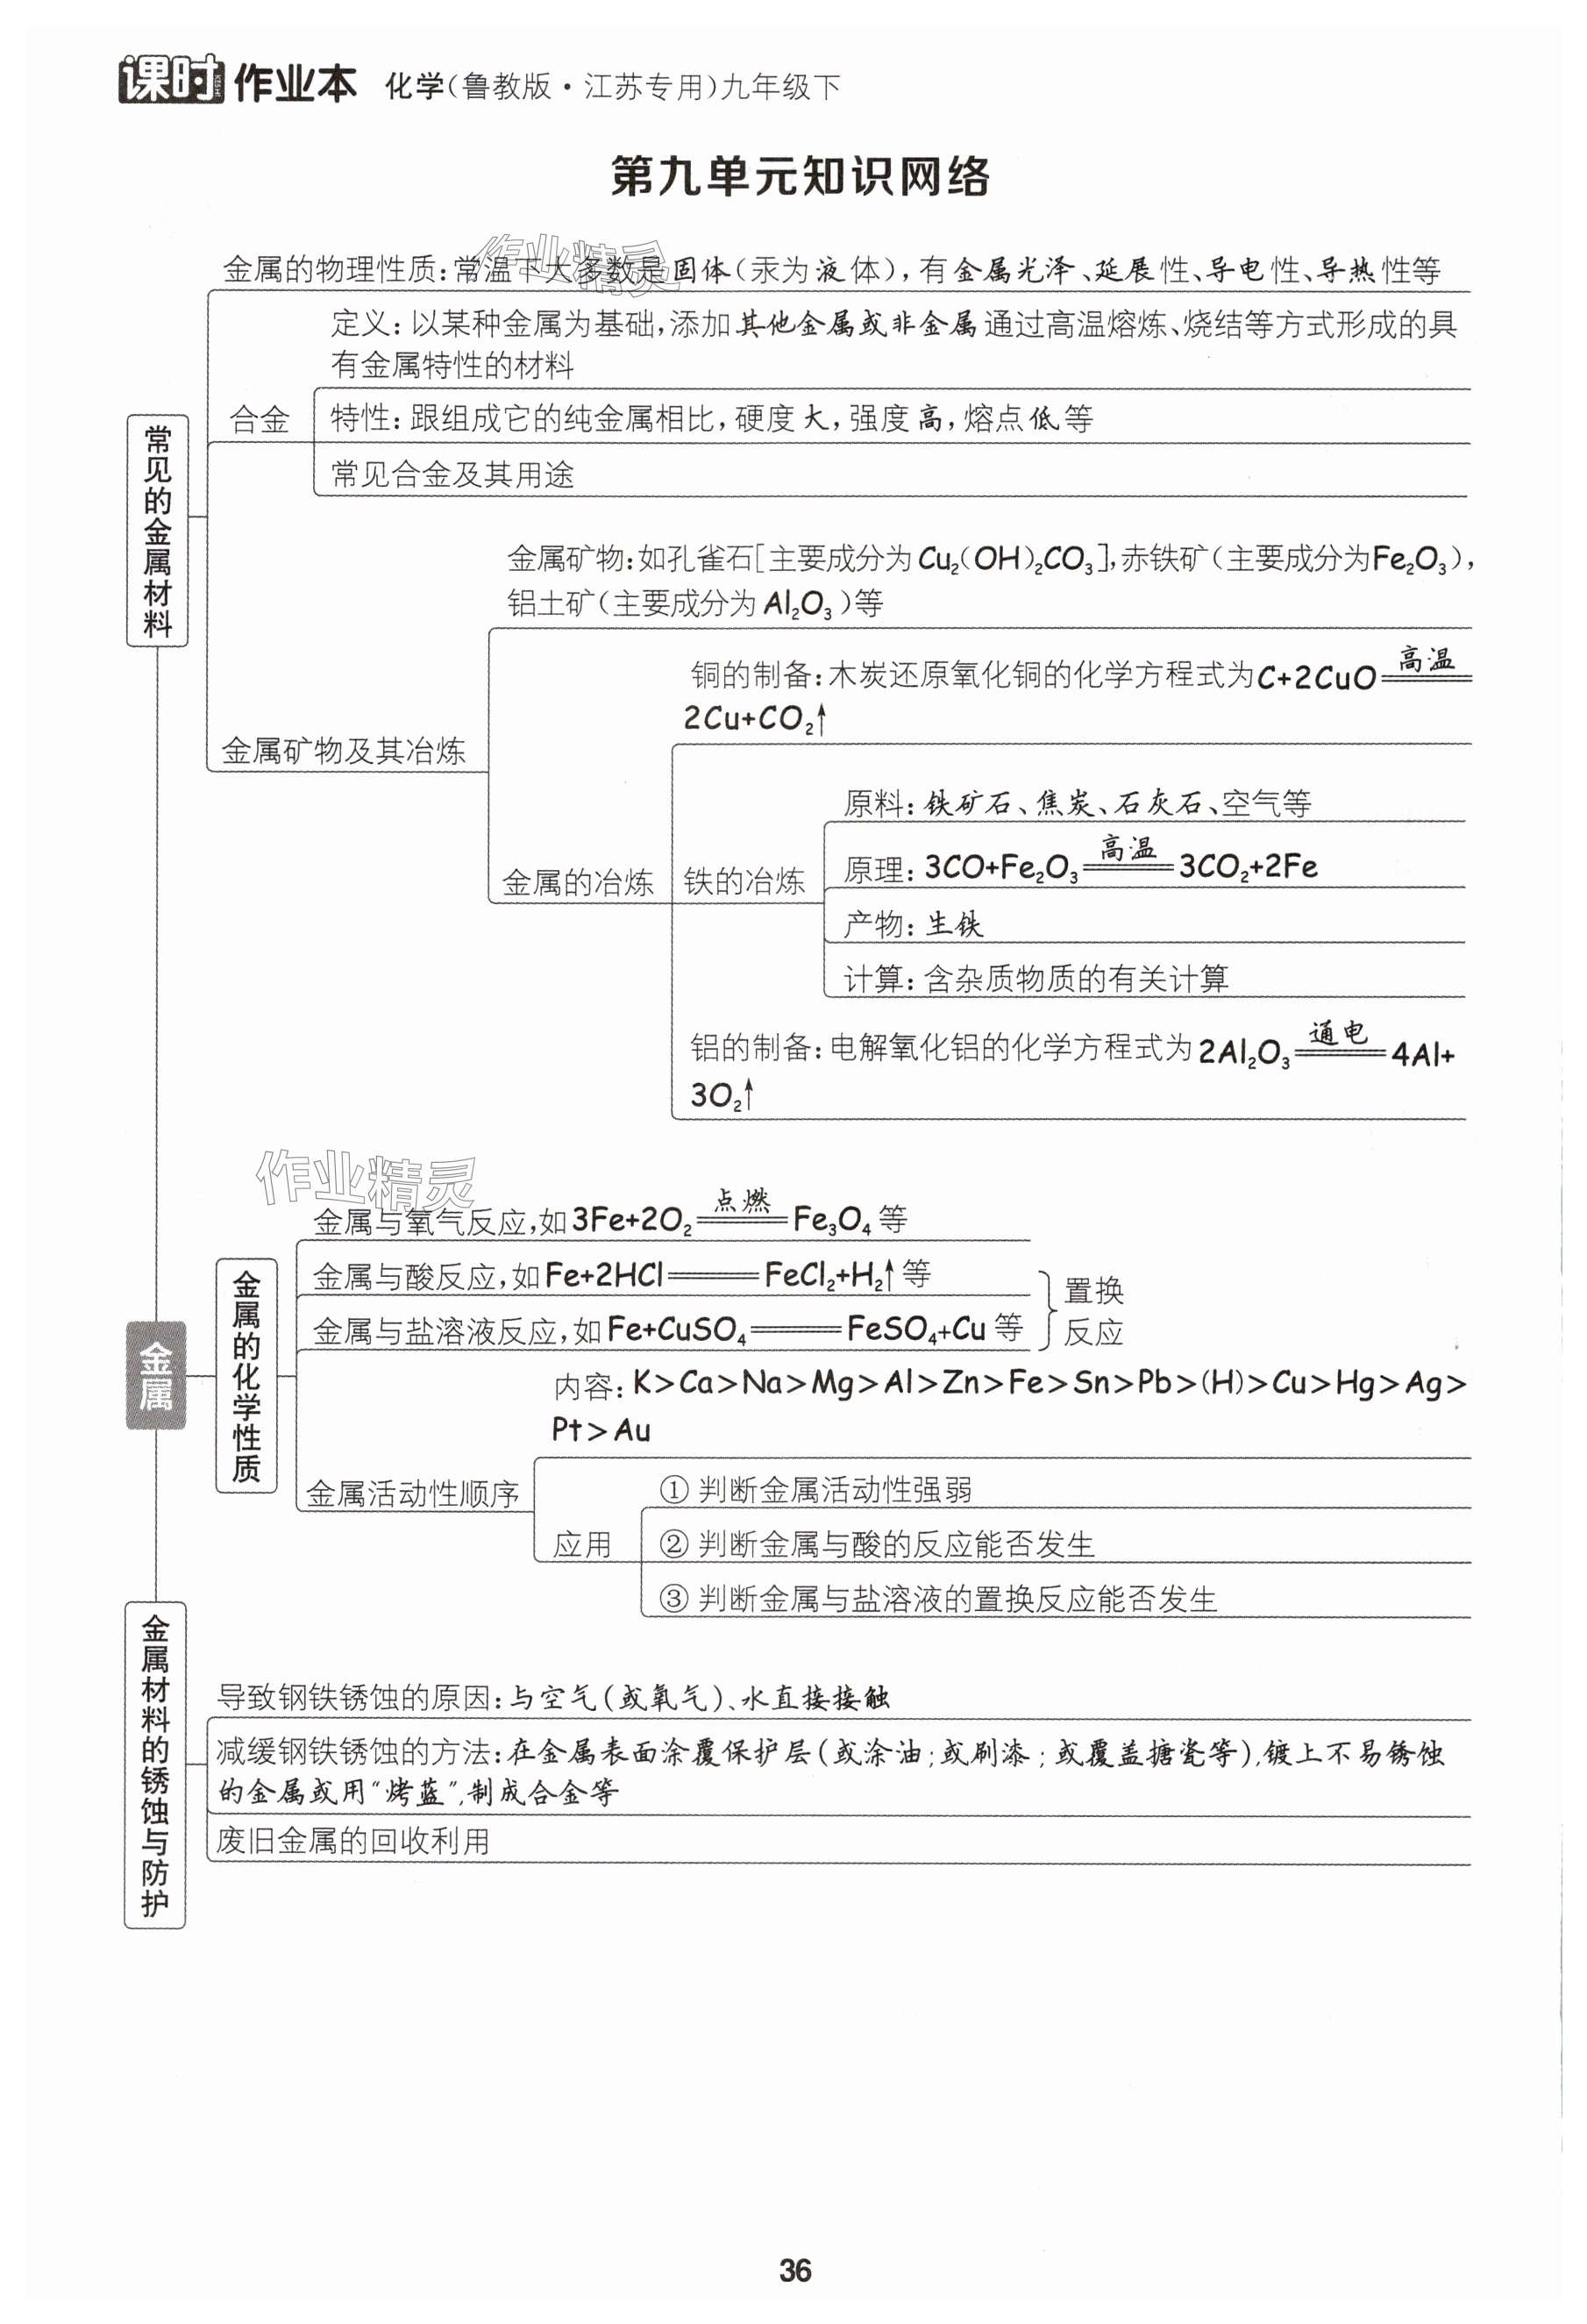 课时作业本 化学(鲁教版·江苏专用)九年级下
第九单元知识网络
作业精灵
金属的物理性质:常温下大多数是固体(汞为液体),有金属光泽、延展性、导电性、导热性等
定义:以某种金属为基础,添加其他金属或非金属通过高温熔炼、烧结等方式形成的具
有金属特性的材料
合金
特性:跟组成它的纯金属相比,硬度大,强度高,熔点低等
常见合金及其用途
常见的金属材料
金属矿物:如孔雀石[主要成分为Cu₂(OH)₂CO₃],赤铁矿(主要成分为Fe₂O₃),
铝土矿(主要成分为Al₂O₃)等
铜的制备:木炭还原氧化铜的化学方程式为C+2CuO ══高温══
2Cu+CO₂↑
金属矿物及其冶炼
原料:铁矿石、焦炭、石灰石、空气等
金属的冶炼
铁的冶炼
原理:3CO+Fe₂O₃ ══高温══ 3CO₂+2Fe
产物:生铁
计算:含杂质物质的有关计算
铝的制备:电解氧化铝的化学方程式为2Al₂O₃ ══通电══ 4Al+
3O₂↑
作业精灵
金属与氧气反应,如3Fe+2O₂ ══点燃══ Fe₃O₄等
金属与酸反应,如Fe+2HCl ════ FeCl₂+H₂↑等
金属与盐溶液反应,如Fe+CuSO₄ ════ FeSO₄+Cu等
置换
反应
金属
金属的化学性质
内容:K>Ca>Na>Mg>Al>Zn>Fe>Sn>Pb>(H)>Cu>Hg>Ag>
Pt>Au
金属活动性顺序
应用
①判断金属活动性强弱
②判断金属与酸的反应能否发生
③判断金属与盐溶液的置换反应能否发生
金属材料的锈蚀与防护
导致钢铁锈蚀的原因:与空气(或氧气)、水直接接触
减缓钢铁锈蚀的方法:在金属表面涂覆保护层(或涂油;或刷漆;或覆盖搪瓷等),镀上不易锈蚀
的金属或用“烤蓝”,制成合金等
废旧金属的回收利用
36